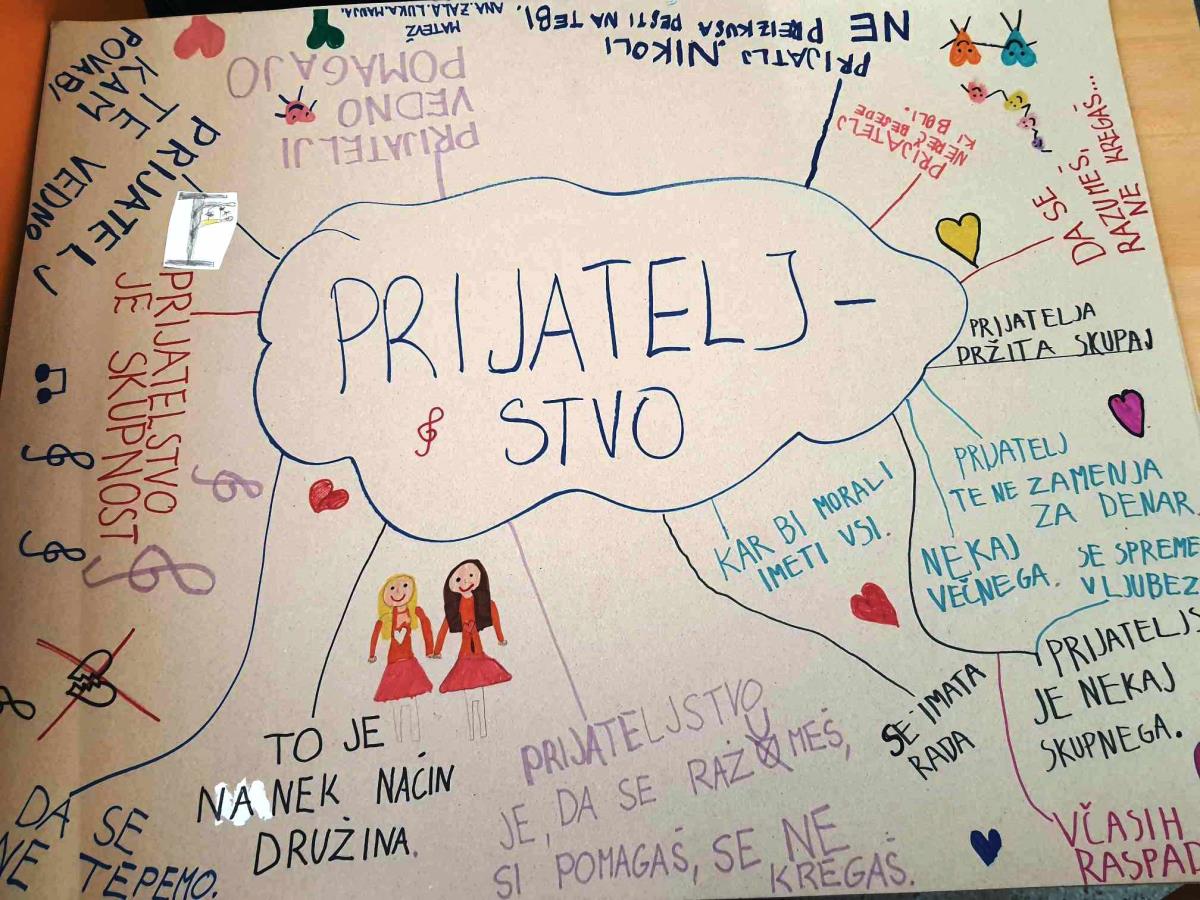 PRIJATELJ-
STVO
MATEVŽ
ANA. ZALA. LUKA. MANJA.
PRIJATELJ NIKOLI
NE PREIZKUŠA PESTI NA TEBI.
PRIJATELJI
VEDNO
POMAGAJO
PRIJATELJ VEDNO
TE KAM
POVABI
PRIJATELJ
NE REČ BESEDE
KI BOLI.
DA SE
RAZUMEŠ,
NE KREGAŠ...
PRIJATELJA
DRŽITA SKUPAJ
PRIJATELJ
TE NE ZAMENJA
ZA DENAR.
NEKAJ
VEČNEGA.
SE SPREME
V LJUBEZ
PRIJATELJS
JE NEKAJ
SKUPNEGA.
VČASIH
RASPAD
KAR BI MORALI
IMETI VSI.
SE IMATA
RADA
PRIJATELJSTVO
JE, DA SE RAZUMEŠ,
SI POMAGAŠ, SE NE
KREGAŠ.
TO JE
NA NEK NAČIN
DRUŽINA.
DA SE
NE TEPEMO.
PRIJATELSTVO
JE SKUPNOST